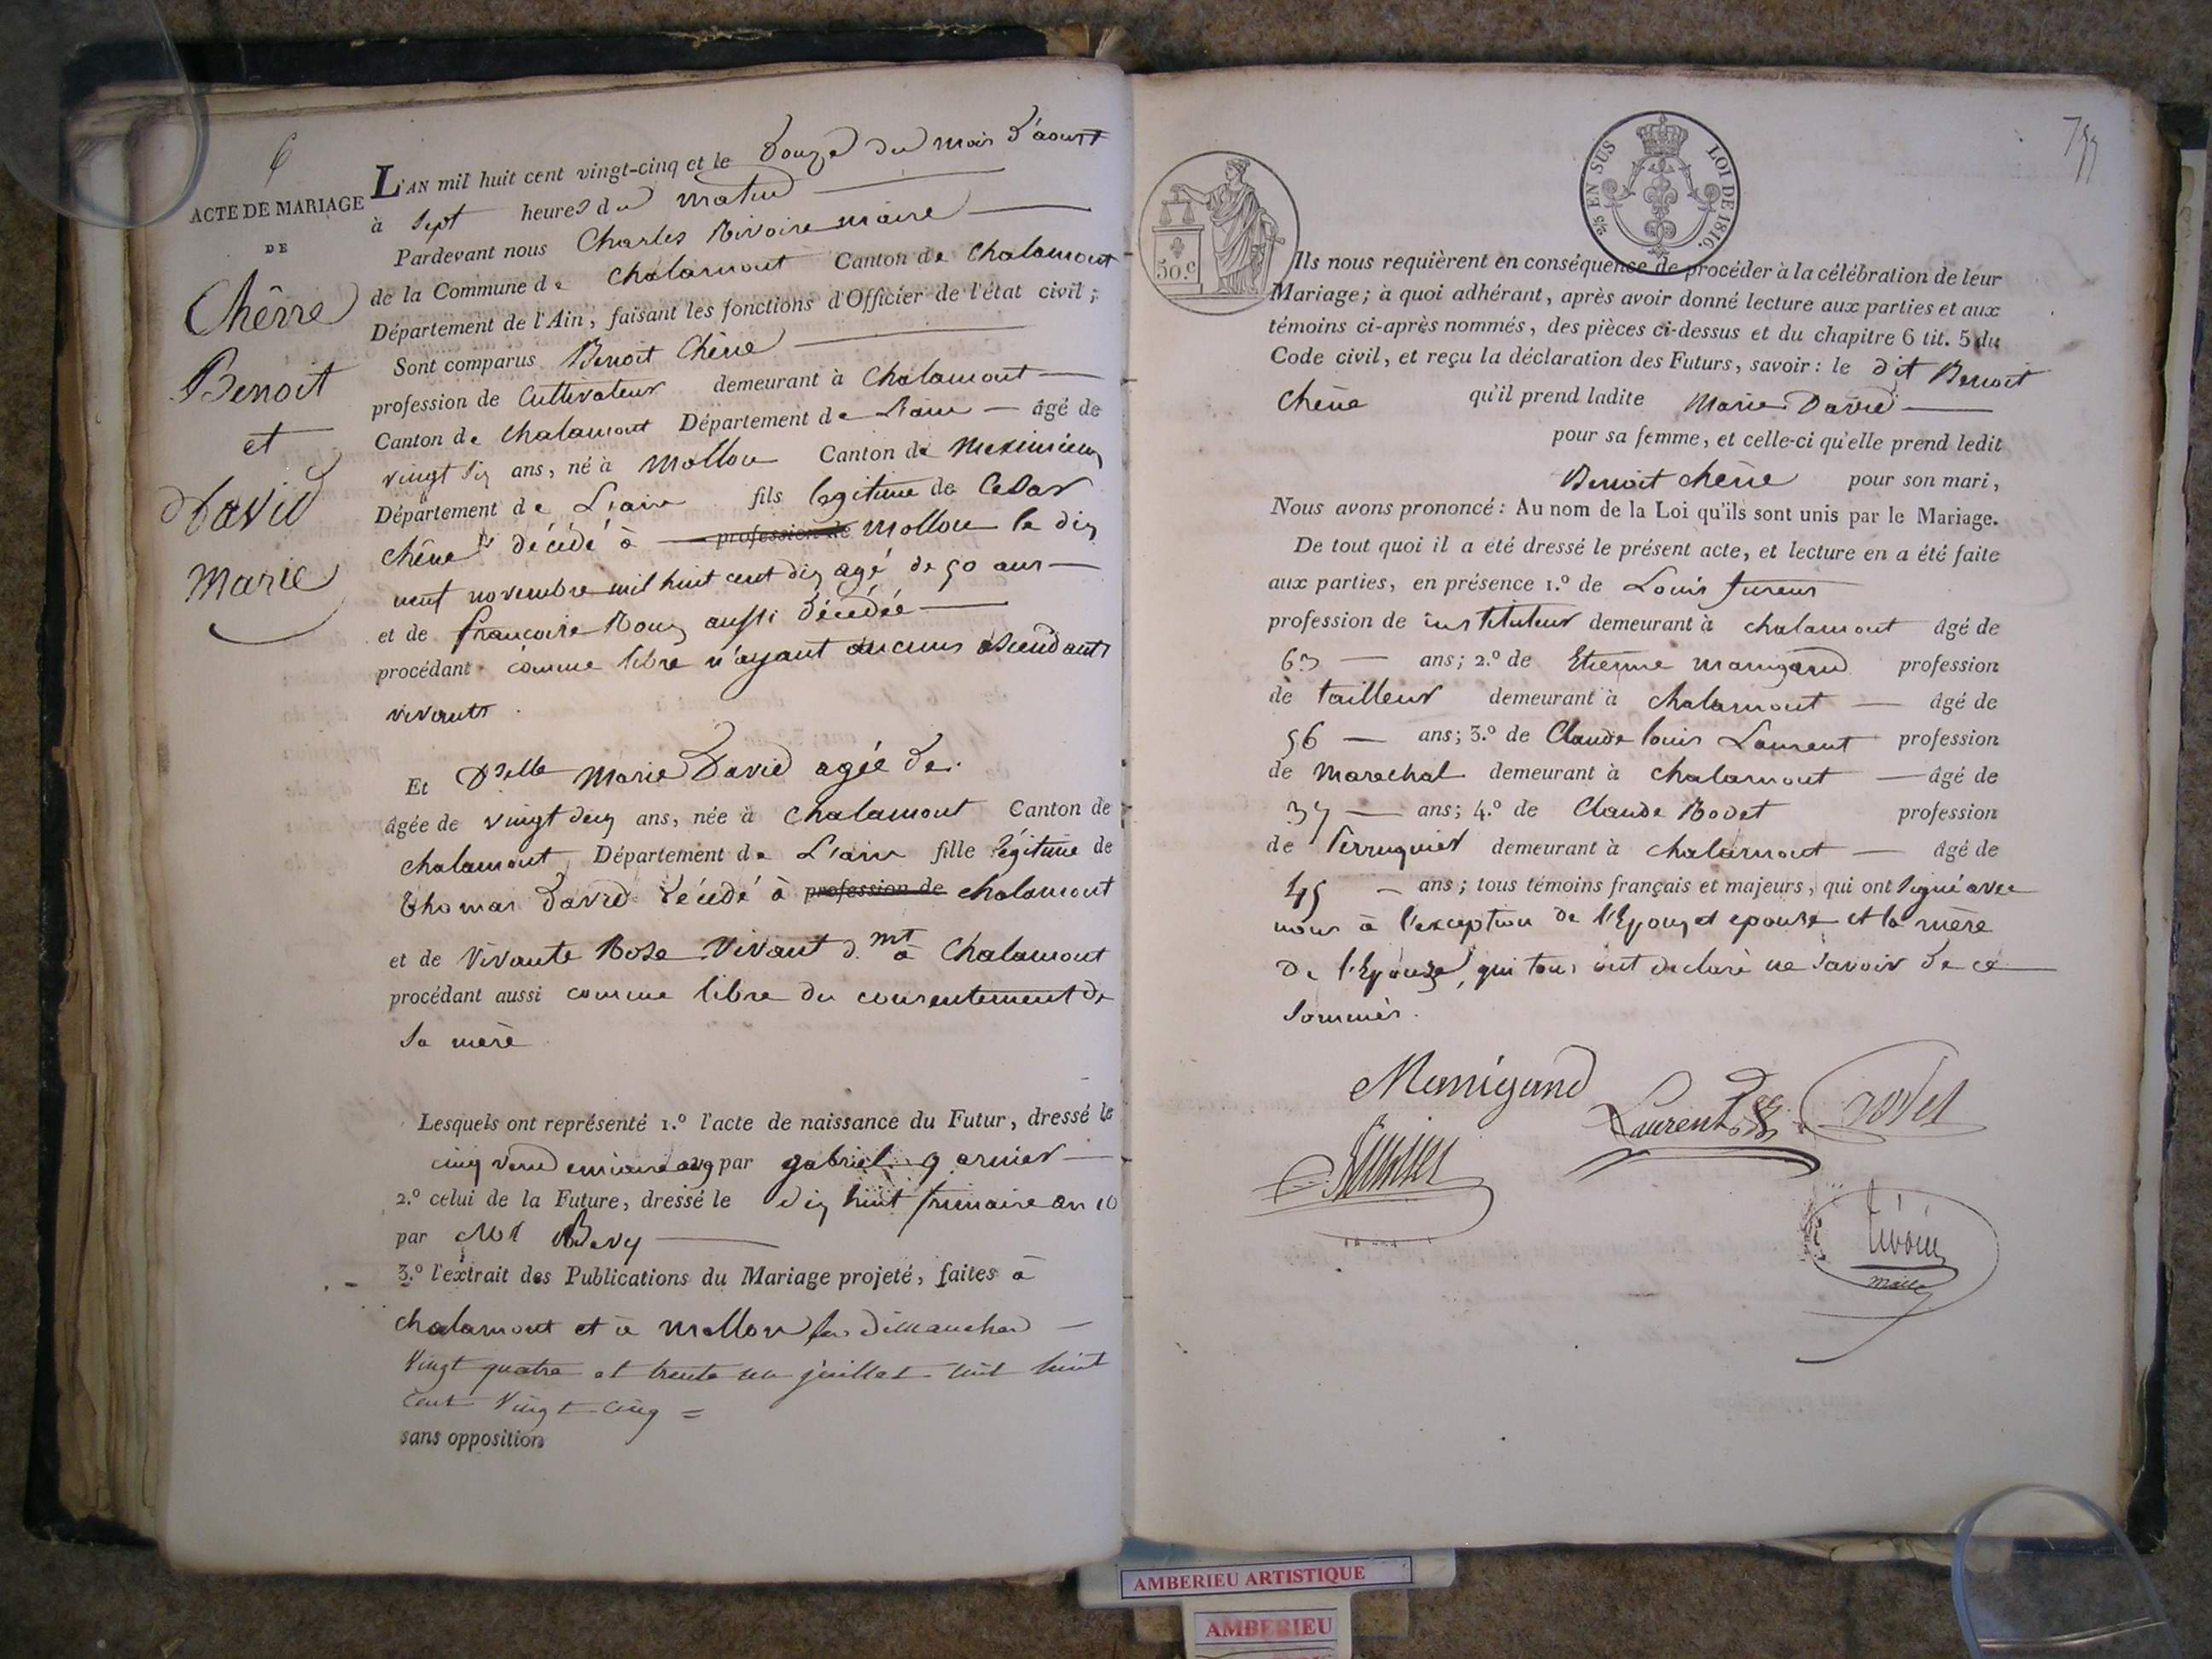 6
ACTE DE MARIAGE
DE
Chêne
Benoit
et
David
Marie
L'AN mil huit cent vingt-cinq et le Douze du mois d'aoust
à Sept heures du matin
Pardevant nous Charles Rivoire maire
de la Commune de Chalamont Canton de Chalamont
Département de l'Ain, faisant les fonctions d'Officier de l'état civil;
Sont comparus Benoit Chêne
profession de Cultivateur demeurant à Chalamont
Canton de Chalamont Département de L'ain âgé de
vingt six ans, né à Mollon Canton de Meximieux
Département de L'ain fils legitime de Cesar
Chêne décédé à profession de Mollon le dix
neuf novembre mil huit cent dix agé de 50 ans
et de francoise Roux aussi décédée
procédant comme libre n'ayant aucuns ascendants
vivants.
Et Dselle Marie David agée de
âgée de vingt deux ans, née à Chalamont Canton de
chalamont, Département de L'ain fille légitime de
Thomas David décédé à profession de chalamont
et de Vivante Rose Vivant d.mt à Chalamont
procédant aussi comme libre du consentement de
Sa mère
Lesquels ont représenté 1.º l'acte de naissance du Futur, dressé le
cinq vend emiaire par gabriel garnier
2.º celui de la Future, dressé le dix huit frimaire an 10
par
3.º l'extrait des Publications du Mariage projeté, faites à
chalamont et à Mollon les dimanches
Vingt quatre et trente un juillet mil huit
Cent Vingt Cinq =
sans opposition
50.c
2/5 EN SUS LOI DE 1816.
Ils nous requièrent en conséquence de procéder à la célébration de leur
Mariage; à quoi adhérant, après avoir donné lecture aux parties et aux
témoins ci-après nommés, des pièces ci-dessus et du chapitre 6 tit. 5 du
Code civil, et reçu la déclaration des Futurs, savoir: le dit Benoit
Chêne qu'il prend ladite Marie David
pour sa femme, et celle-ci qu'elle prend ledit
Benoit chêne pour son mari,
Nous avons prononcé: Au nom de la Loi qu'ils sont unis par le Mariage.
De tout quoi il a été dressé le présent acte, et lecture en a été faite
aux parties, en présence 1.º de Louis
profession de instituteur demeurant à chalamont âgé de
63 ans; 2.º de Etienne Manigand profession
de tailleur demeurant à chalamont âgé de
56 ans; 3.º de Claude louis Laurent profession
de Marechal demeurant à chalamont âgé de
37 ans; 4.º de Claude Bodet profession
de Perruquier demeurant à chalamont âgé de
45 ans; tous témoins français et majeurs, qui ont signé avec
nous à l'exception de l'Epoux et epouse et la mère
De l'Epouse, qui tous ont declaré ne Savoir de ce
Sommés.
Manigand
Laurent
Rivoire
maire
AMBERIEU ARTISTIQUE
AMBERIEU